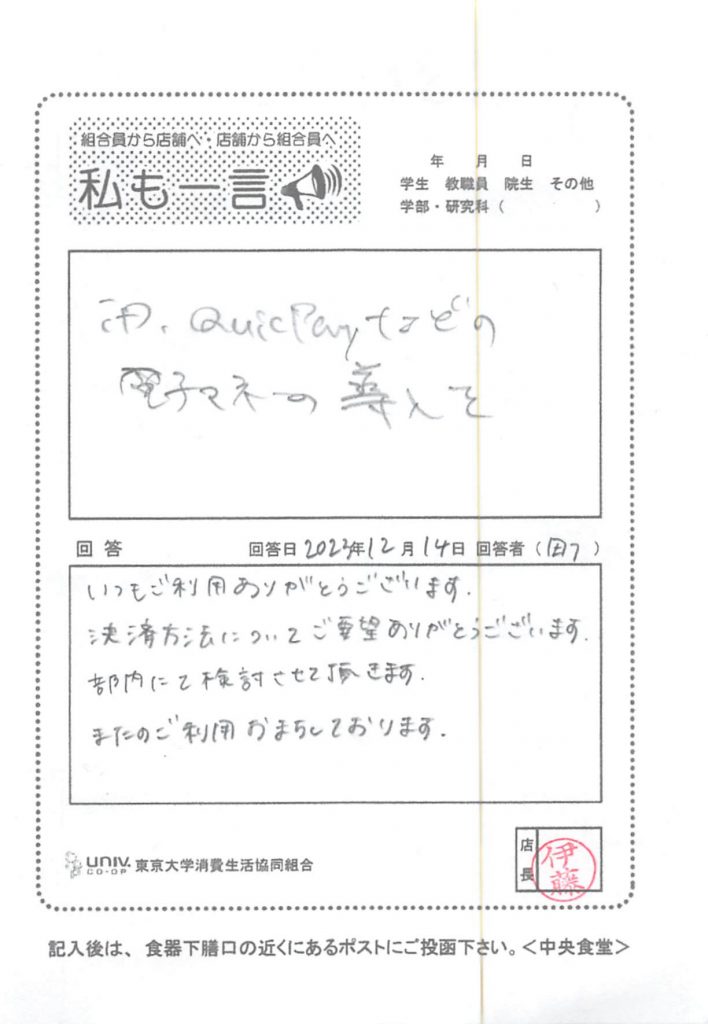 組合員から店舗へ・店舗から組合員へ
私も一言
年 月 日
学生 教職員 院生 その他
学部・研究科( )
iD、QuicPayなどの
電子マネーの導入を
回答 回答日 2023年12月14日 回答者( )
いつもご利用ありがとうございます.
決済方法についてご要望ありがとうございます.
部内にて検討させて頂きます.
またのご利用おまちしております.
店長
伊藤
UNIV. CO-OP 東京大学消費生活協同組合
記入後は、食器下膳口の近くにあるポストにご投函下さい。<中央食堂>